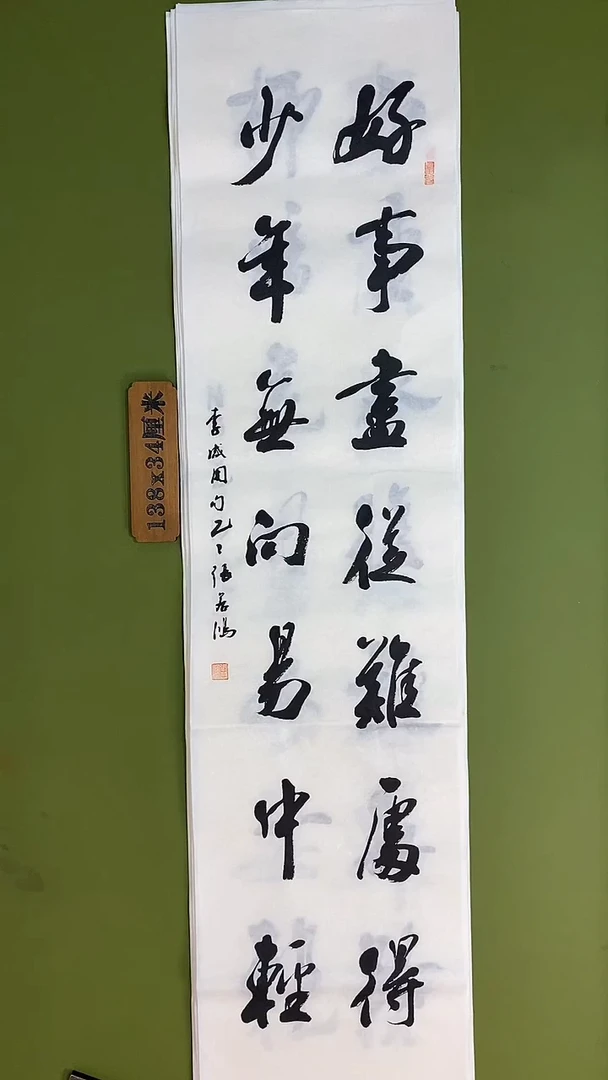 好事盡從難處得
少年無向易中輕
李咸用句乙巳張若鴻
138x34厘米